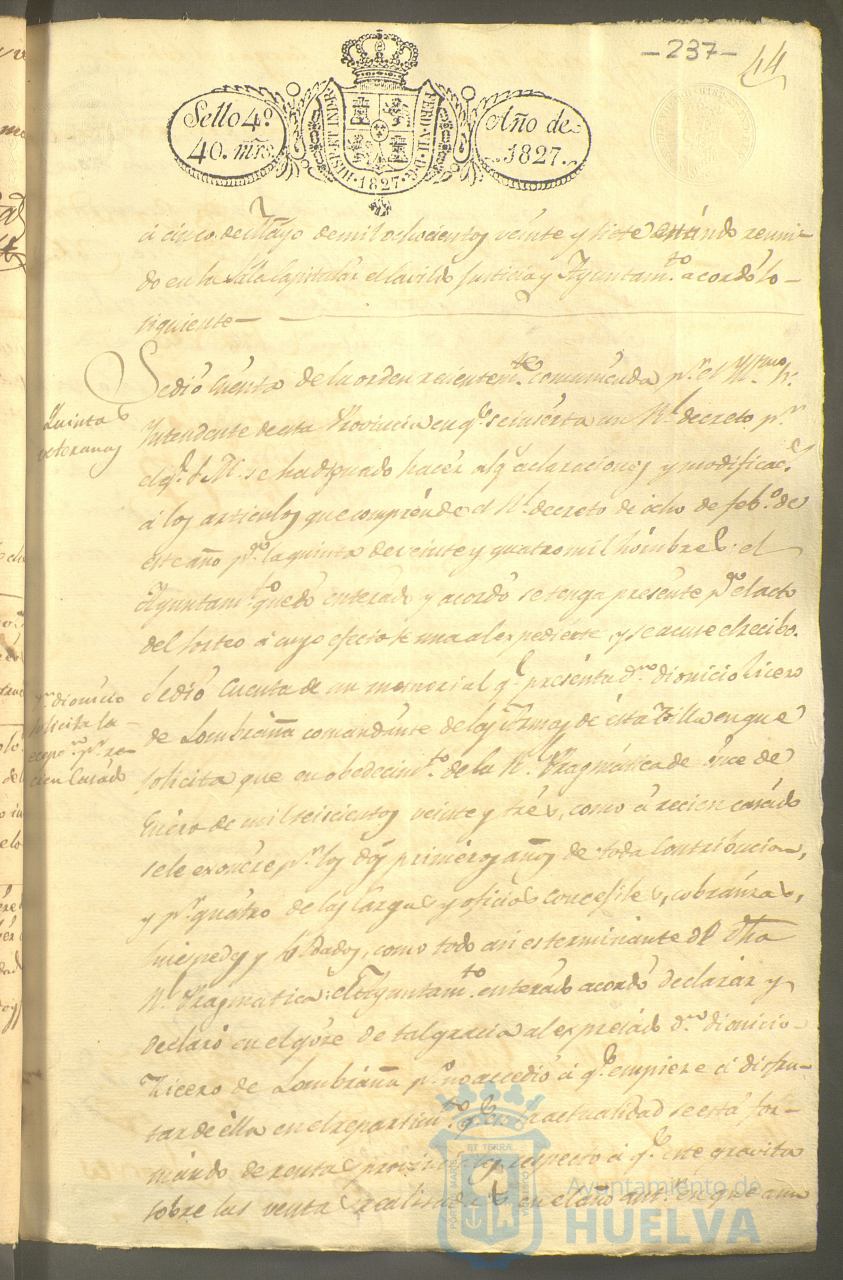 -237-
44
Sello 4º
40. mrs
HISP. ET IND. R.
FERD. VII. D. G.
1827
Año de
1827.
á cinco de Mayo de mil ochocientos veinte y siete estándo reuni-
do en la Sala Capitular el Cavildo Justicia y Ayuntam.to acordó lo
siguiente
Quintas
veteranas
Se dió Cuenta de la orden recientem.te comunicada p.r el
Intendente de esta Provincia en q.e se inserta un R.l decreto p.r
el q.e S. M. se ha dignado hacer alg.s aclaraciones y modificac.s
á los articulos que comprénde el R.l decreto de ocho de feb.o de
este año p.a la quinta de veinte y quatro mil hómbres; el
Ayuntam.to quedó enterado y acordó se tenga presente p.a el acto
del sorteo á cuyo efecto se una al expediente, y se acuse el recibo.
D.n dionicio
solicita la
p.r re-
cien Casado
Se dió Cuenta de un memorial q.e presénta d.n dionicio Ricero
de Lombráña comandánte de las ármas de ésta Villa en que
solicita que en obedecim.to de la R.l Pragmática de ónce de
Enéro de mil seiscientos veinte y trés, como á recien casádo
se le exonére p.r los dos priméros años de toda Contribucion,
y p.r quátro de las Cárgas y oficios Concegiles, cobránzas,
huéspedes y Soldados, como todo asi es terminánte dha
R.l Pragmática: el Ayuntam.to enterado acordó declarár y
declaró en el góze de tal grácia al expresádo d.n dionicio
Ricero de Lombráña p.o no accedió á q.e empieze á disfru-
tar de élla en el repartim.to q.e en la actualidad se está for-
mándo de rentas provinciales respecto á q.e este gravita
sobre las ventas realisadas en el año ant.r en que aun
ET TERRAE
Ayuntamiento de
HUELVA